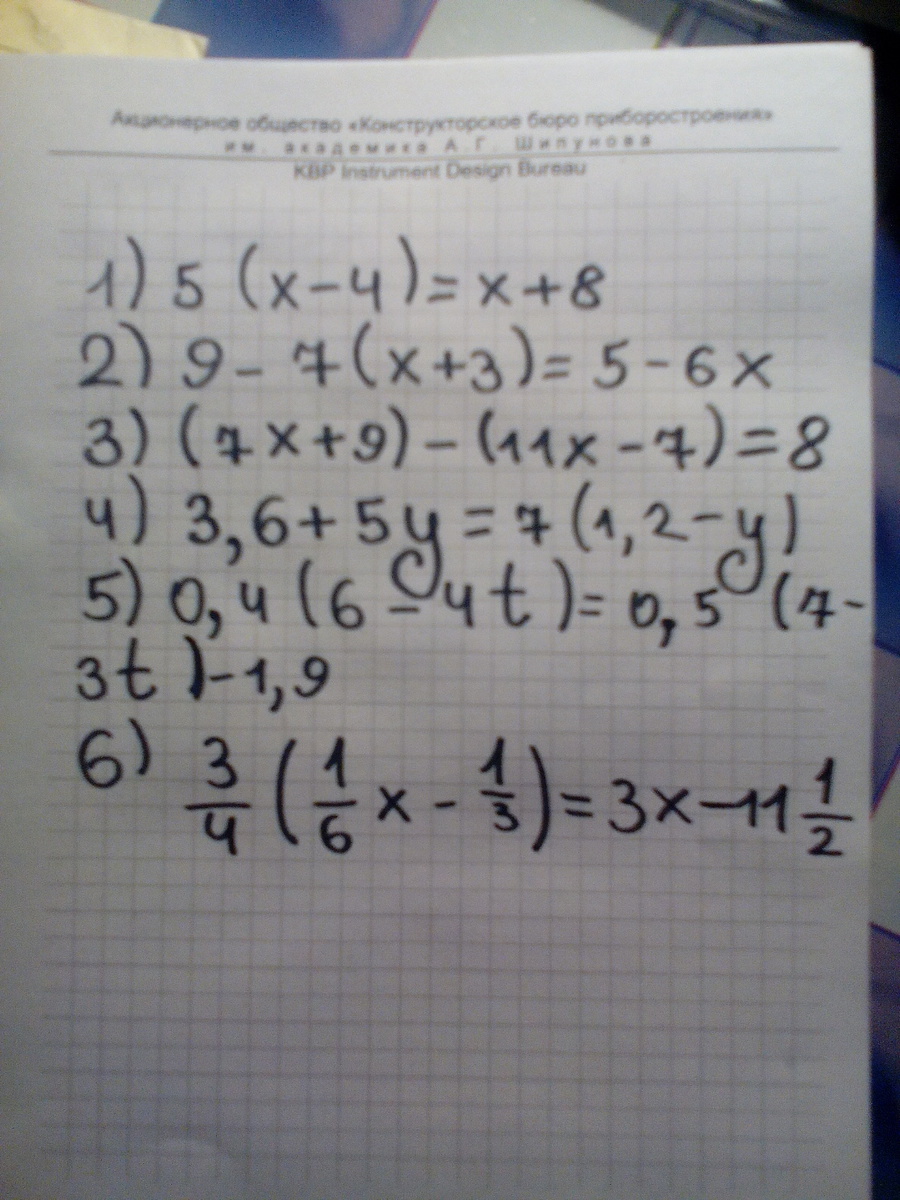 Акционерное общество «Конструкторское бюро приборостроения»
им. академика А.Г. Шипунова
KBP Instrument Design Bureau
1) 5 (x-4)=x+8
2) 9- 7(x+3)= 5-6x
3) (7x+9)-(11x-7)=8
4) 3,6+5y=7(1,2-y)
5) 0,4(6-4t)=0,5 (7-
3t)-1,9
6) 3/4 (1/6 x - 1/3)=3x-11 1/2